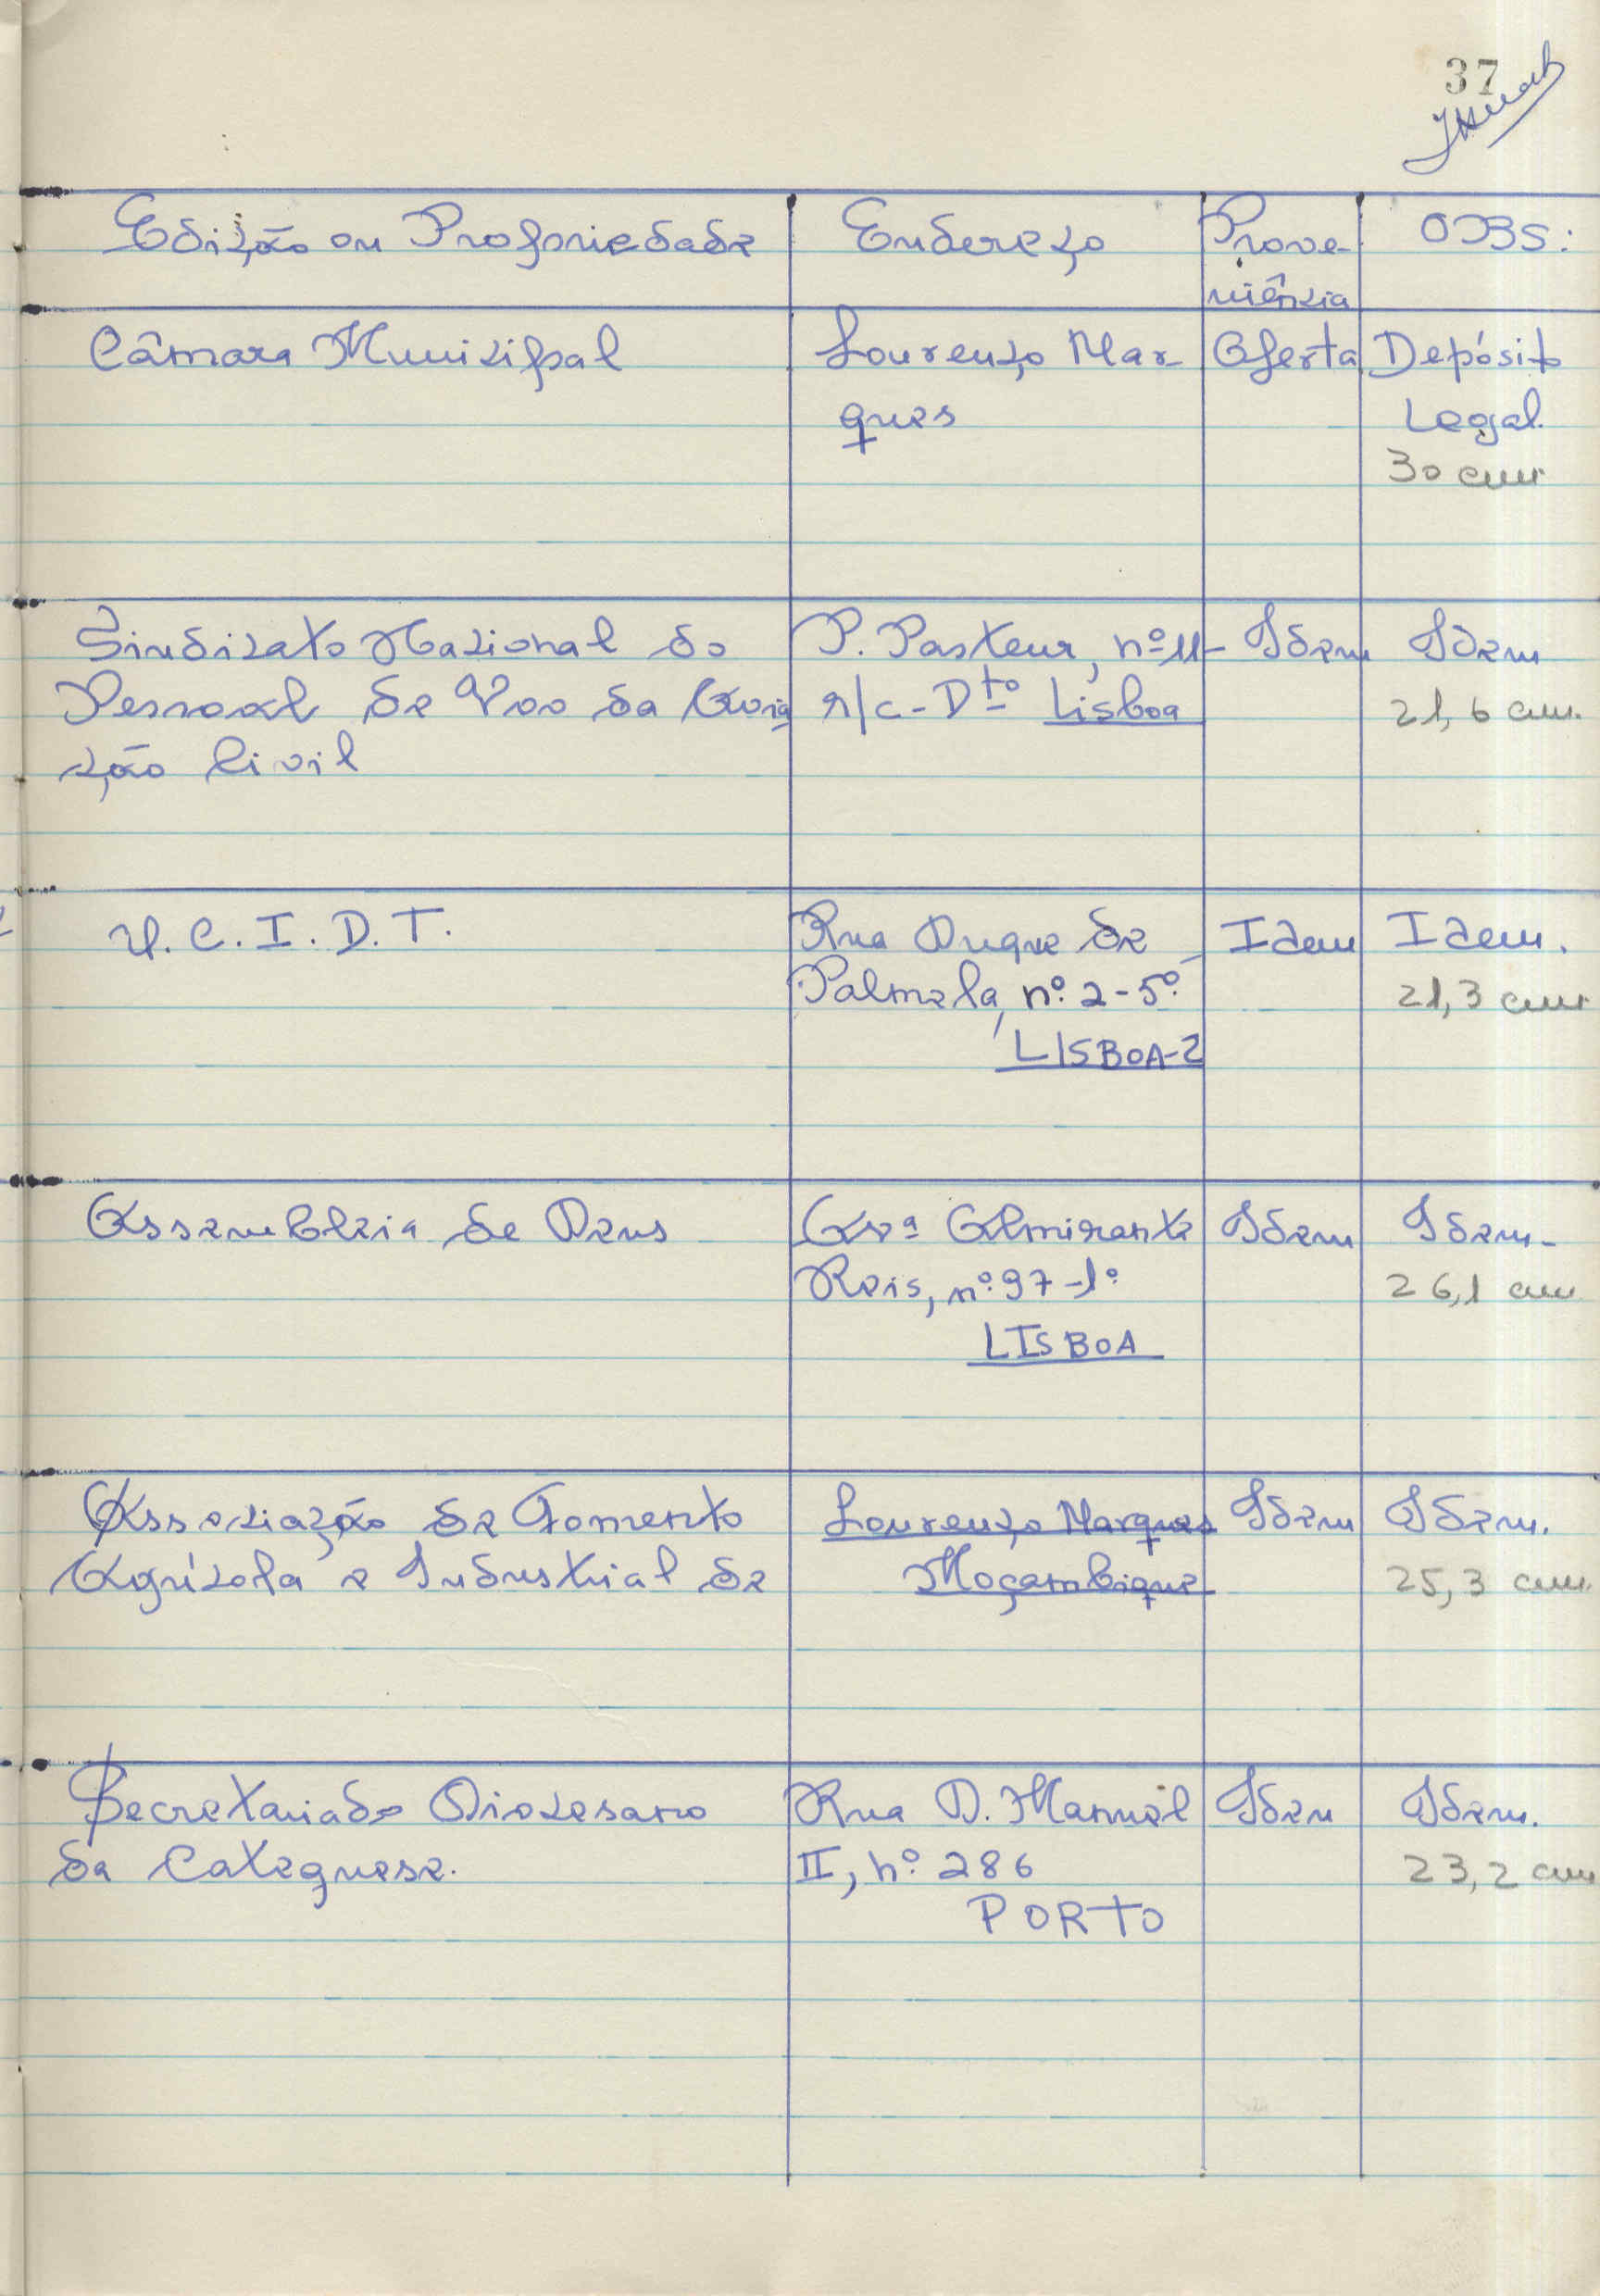 37
Edição ou Propriedade Endereço Prove- OBS:
niência
Câmara Municipal Lourenço Mar- Oferta Depósito
ques Legal.
30 cm.
Sindicato Nacional do P. Pasteur, nº 11- Idem Idem
Pessoal de Voo da Avia r/c-Dto Lisboa 21,6 cm.
ção Civil
U.C.I.D.T. Rua Duque de Idem Idem.
Palmela, nº. 2-5º. 21,3 cm.
LISBOA-2
Assembleia de Deus Avª Almirante Idem Idem-
Reis, nº. 97-1º 26,1 cm
LISBOA
Associação de Fomento Lourenço Marques Idem Idem.
Agrícola e Industrial de Moçambique 25,3 cm.
Secretariado Diocesano Rua D. Manuel Idem Idem.
da Catequese. II, nº. 286 23,2 cm
PORTO